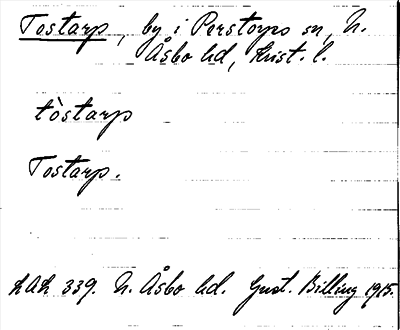 Tostarp, by i Perstorps sn, N.
Åsbo hd, Krist. l.
tòstarp
Tostarp.
LAL 339. N. Åsbo hd. Gust. Billing 1915.